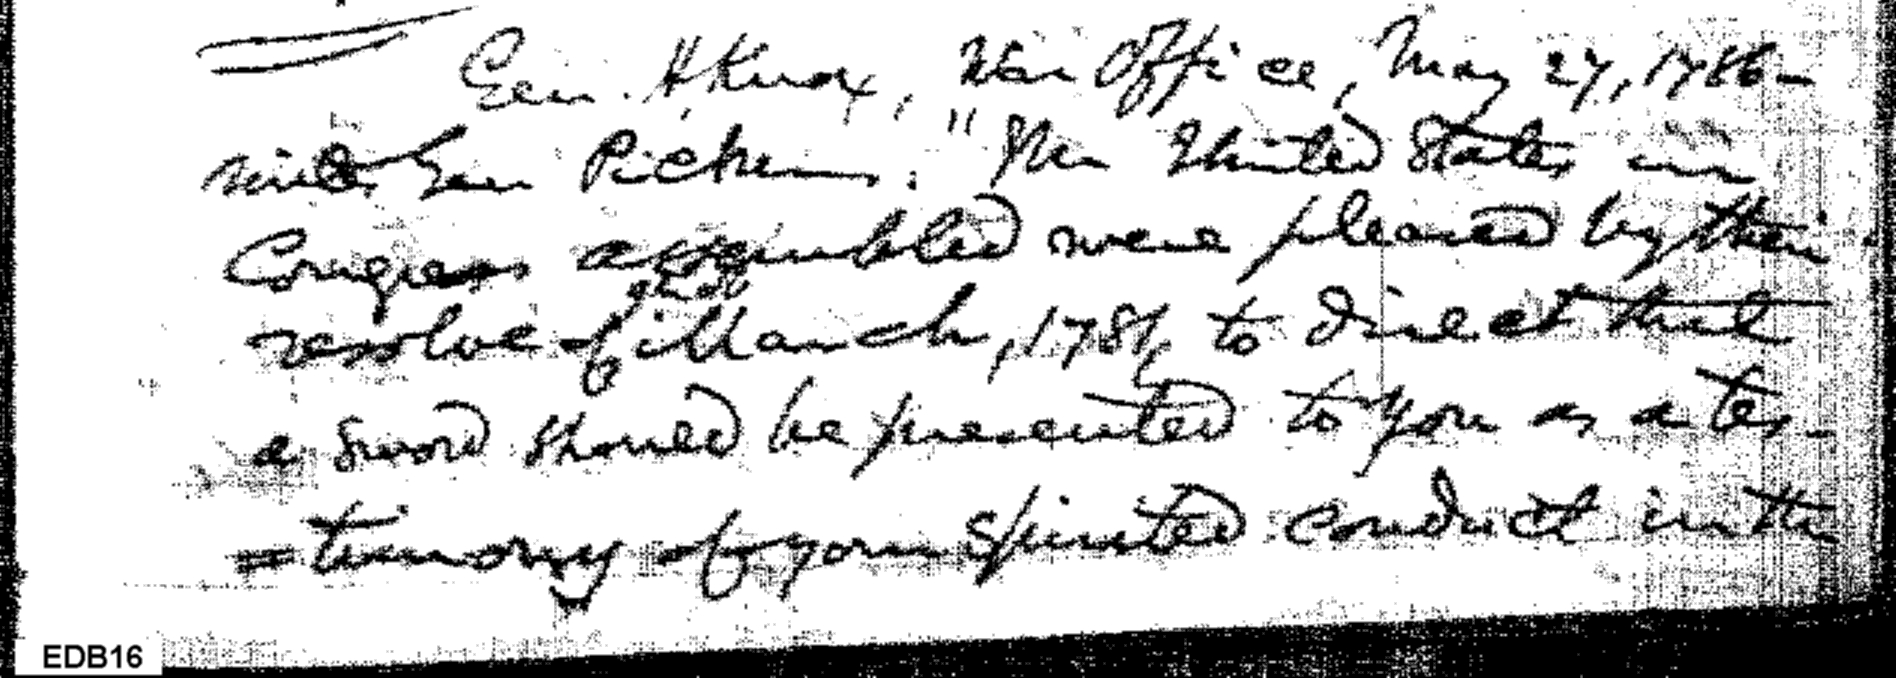 Gen. H Knox, War Office, May 27, 1786 -
writes Gen Pickens. "The United States in
Congress assembled were pleased by their
resolve of March, 1781, to direct that
a sword should be presented to you as a tes-
=timony of your spirited conduct in the
EDB16